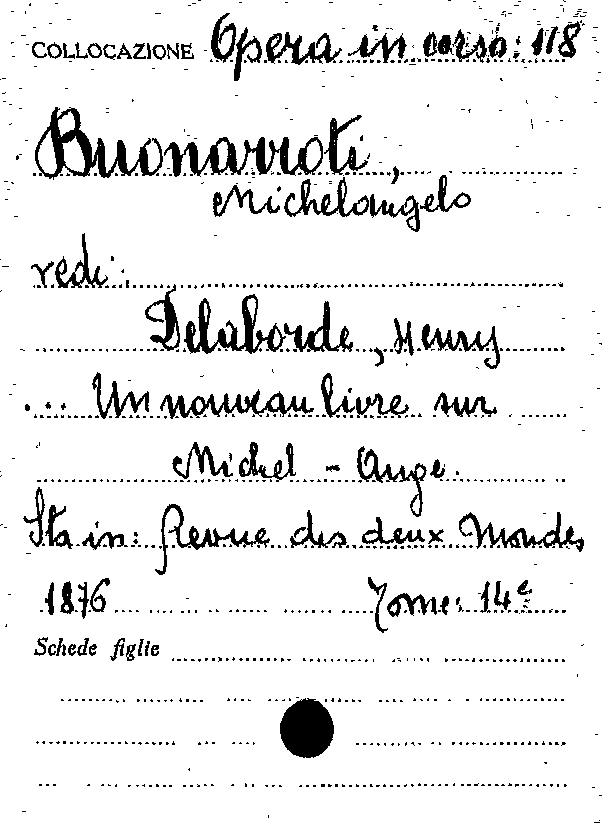 COLLOCAZIONE Opera in corso: 118
Buonarroti,
Michelangelo
vedi:
Delaborde, Henry
... Un nouveau livre sur
Michel-Ange.
Sta in: Revue des deux Mondes
1876 Tome: 14e
Schede figlie